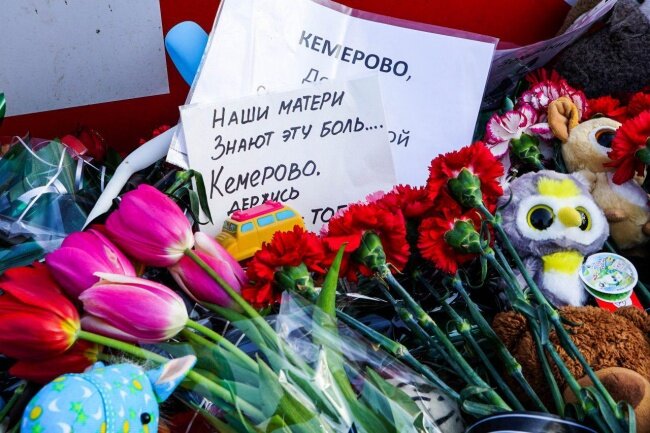 КЕМЕРОВО,
НАШИ МАТЕРИ
ЗНАЮТ ЭТУ БОЛЬ....
КЕМЕРОВО.
ДЕРЖИСЬ